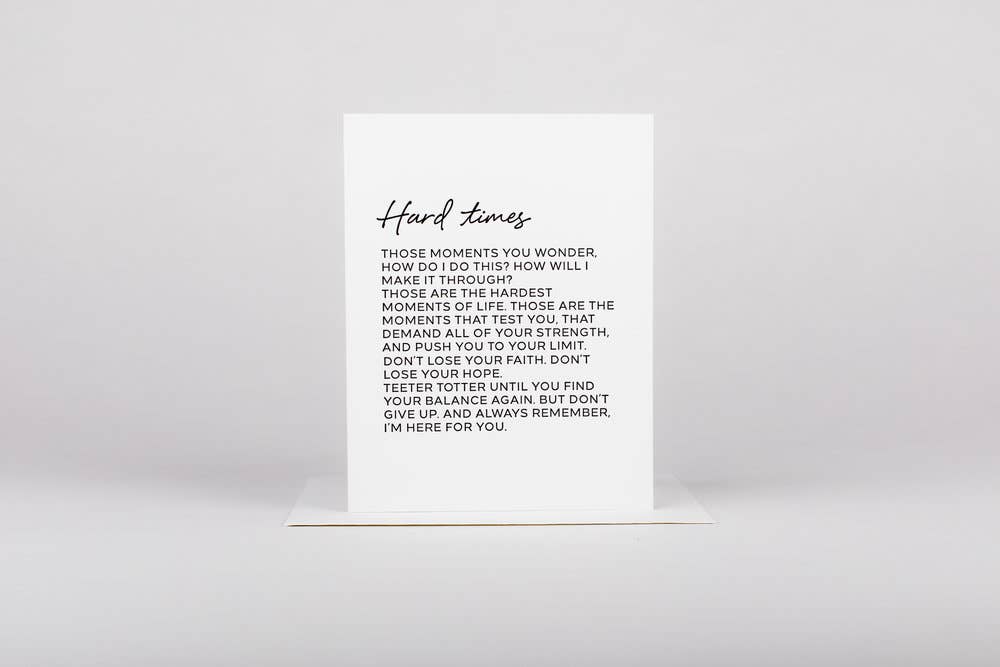 Hard times
THOSE MOMENTS YOU WONDER,
HOW DO I DO THIS? HOW WILL I
MAKE IT THROUGH?
THOSE ARE THE HARDEST
MOMENTS OF LIFE. THOSE ARE THE
MOMENTS THAT TEST YOU, THAT
DEMAND ALL OF YOUR STRENGTH,
AND PUSH YOU TO YOUR LIMIT.
DON'T LOSE YOUR FAITH. DON'T
LOSE YOUR HOPE.
TEETER TOTTER UNTIL YOU FIND
YOUR BALANCE AGAIN. BUT DON'T
GIVE UP. AND ALWAYS REMEMBER,
I'M HERE FOR YOU.